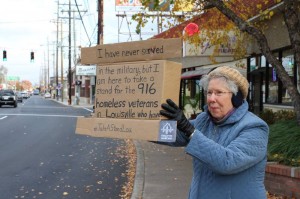 I have never served
in the military, but I
am here to take a
stand for the 916
homeless veterans
in Louisville who have